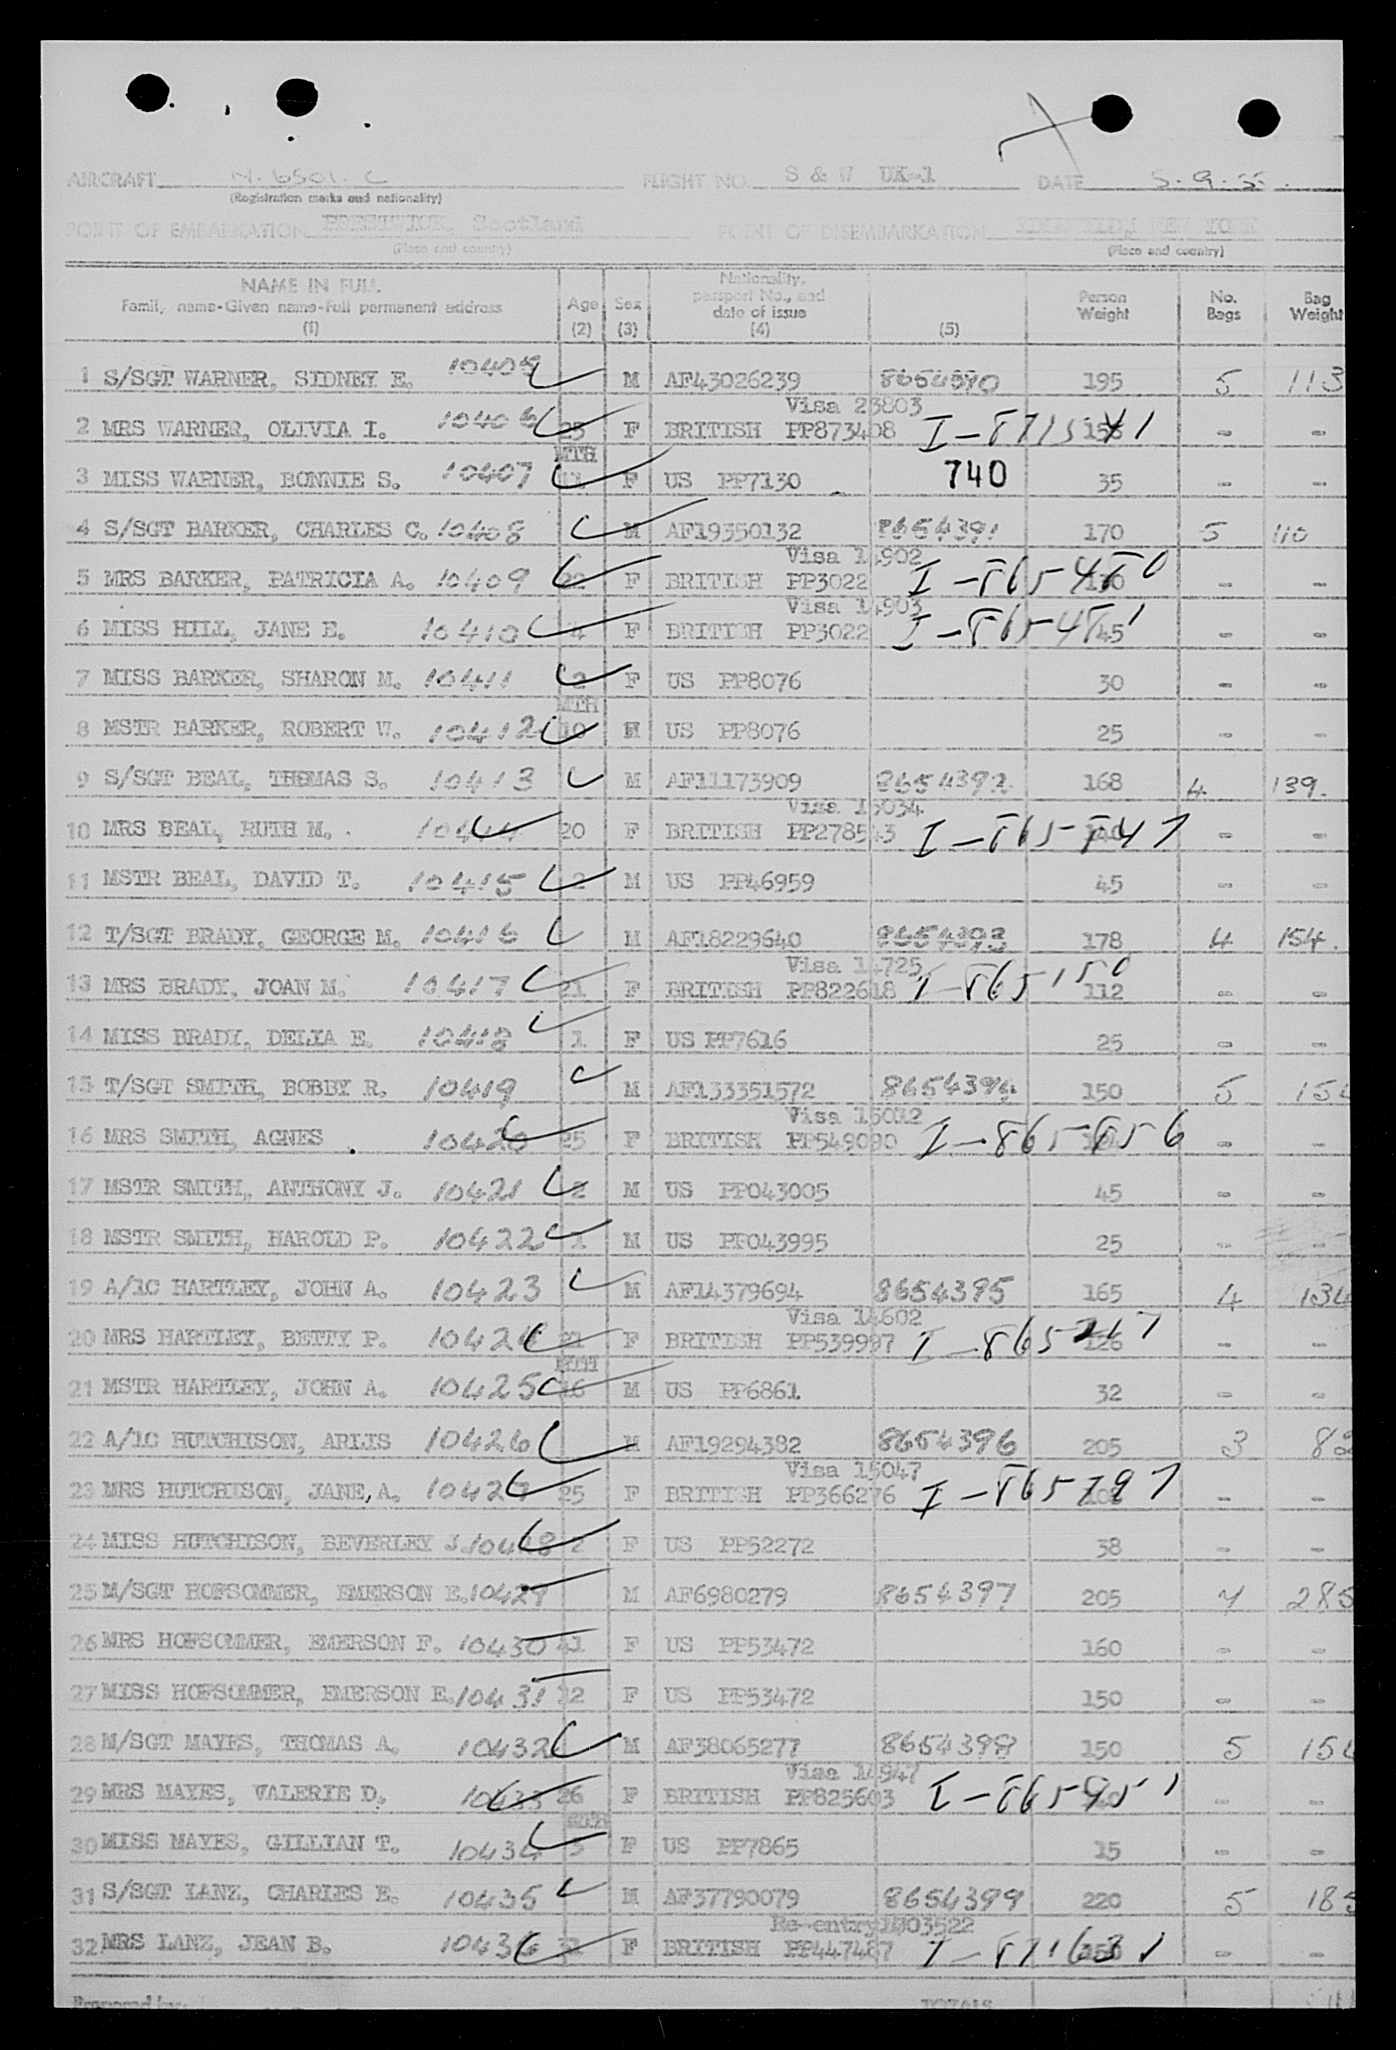 AIRCRAFT N. 6501. C FLIGHT NO. S & W UK-1 DATE 5.9.55.
(Registration marks and nationality)
POINT OF EMBARKATION PRESTWICK, Scotland POINT OF DISEMBARKATION IDLEWILD, NEW YORK
(Place and country) (Place and country)
NAME IN FULL Age Sex Nationality, passport No., and date of issue Person Weight No. Bags Bag Weight
Family name-Given name-Full permanent address
(1) (2) (3) (4) (5)
1 S/SGT WARNER, SIDNEY E. 10405 M AF43026239 8654390 195 5 113
Visa 23803
2 MRS WARNER, OLIVIA I. 10406 25 F BRITISH PP873408 I-871541 - -
MTH
3 MISS WARNER, BONNIE S. 10407 11 F US PP7130 740 35 - -
4 S/SGT BARKER, CHARLES C. 10408 M AF19350132 8654391 170 5 110
Visa 14902
5 MRS BARKER, PATRICIA A. 10409 22 F BRITISH PP3022 I-865480 - -
Visa 14903
6 MISS HILL, JANE E. 10410 4 F BRITISH PP3022 I-865481 45 - -
7 MISS BARKER, SHARON M. 10411 2 F US PP8076 30 - -
MTH
8 MSTR BARKER, ROBERT W. 10412 10 M US PP8076 25 - -
9 S/SGT BEAL, THOMAS S. 10413 M AF11173909 8654392 168 4 139.
Visa 15034
10 MRS BEAL, RUTH M. 10414 20 F BRITISH PP278543 I-865847 - -
11 MSTR BEAL, DAVID T. 10415 2 M US PP46959 45 - -
12 T/SGT BRADY, GEORGE M. 10416 M AF18229640 8654393 178 4 154.
Visa 14725
13 MRS BRADY, JOAN M. 10417 21 F BRITISH PP822618 I-865150 112 - -
14 MISS BRADY, DELIA E. 10418 1 F US PP7616 25 - -
15 T/SGT SMITH, BOBBY R. 10419 M AF133351572 8654394 150 5 15
Visa 15012
16 MRS SMITH, AGNES 10420 25 F BRITISH PP549090 I-865856 - -
17 MSTR SMITH, ANTHONY J. 10421 2 M US PP043005 45 - -
18 MSTR SMITH, HAROLD P. 10422 1 M US PP043995 25 - -
19 A/1C HARTLEY, JOHN A. 10423 M AF14379694 8654395 165 4 134
Visa 14602
20 MRS HARTLEY, BETTY P. 10424 21 F BRITISH PP539997 I-865217 126 - -
MTH
21 MSTR HARTLEY, JOHN A. 10425 16 M US PP6861 32 - -
22 A/1C HUTCHISON, ARLIS 10426 M AF19294382 8654396 205 3 82
Visa 15047
23 MRS HUTCHISON, JANE, A. 10427 25 F BRITISH PP366276 I-865797 - -
24 MISS HUTCHISON, BEVERLEY J. 10428 2 F US PP52272 38 - -
25 M/SGT HOFSOMMER, EMERSON E. 10429 M AF6980279 8654397 205 7 285
26 MRS HOFSOMMER, EMERSON F. 10430 41 F US PP53472 160 - -
27 MISS HOFSOMMER, EMERSON E. 10431 12 F US PP53472 150 - -
28 M/SGT MAYES, THOMAS A. 10432 M AF38065277 8654398 150 5 15
Visa 14947
29 MRS MAYES, VALERIE D. 10433 26 F BRITISH PP825603 I-865951 - -
30 MISS MAYES, GILLIAN T. 10434 5 F US PP7865 15 - -
31 S/SGT LANZ, CHARLES E. 10435 M AF37790079 8654399 220 5 185
Re-entry 1403522
32 MRS LANZ, JEAN B. 10436 31 F BRITISH PP447487 I-871631 - -
Prepared by: TOTALS